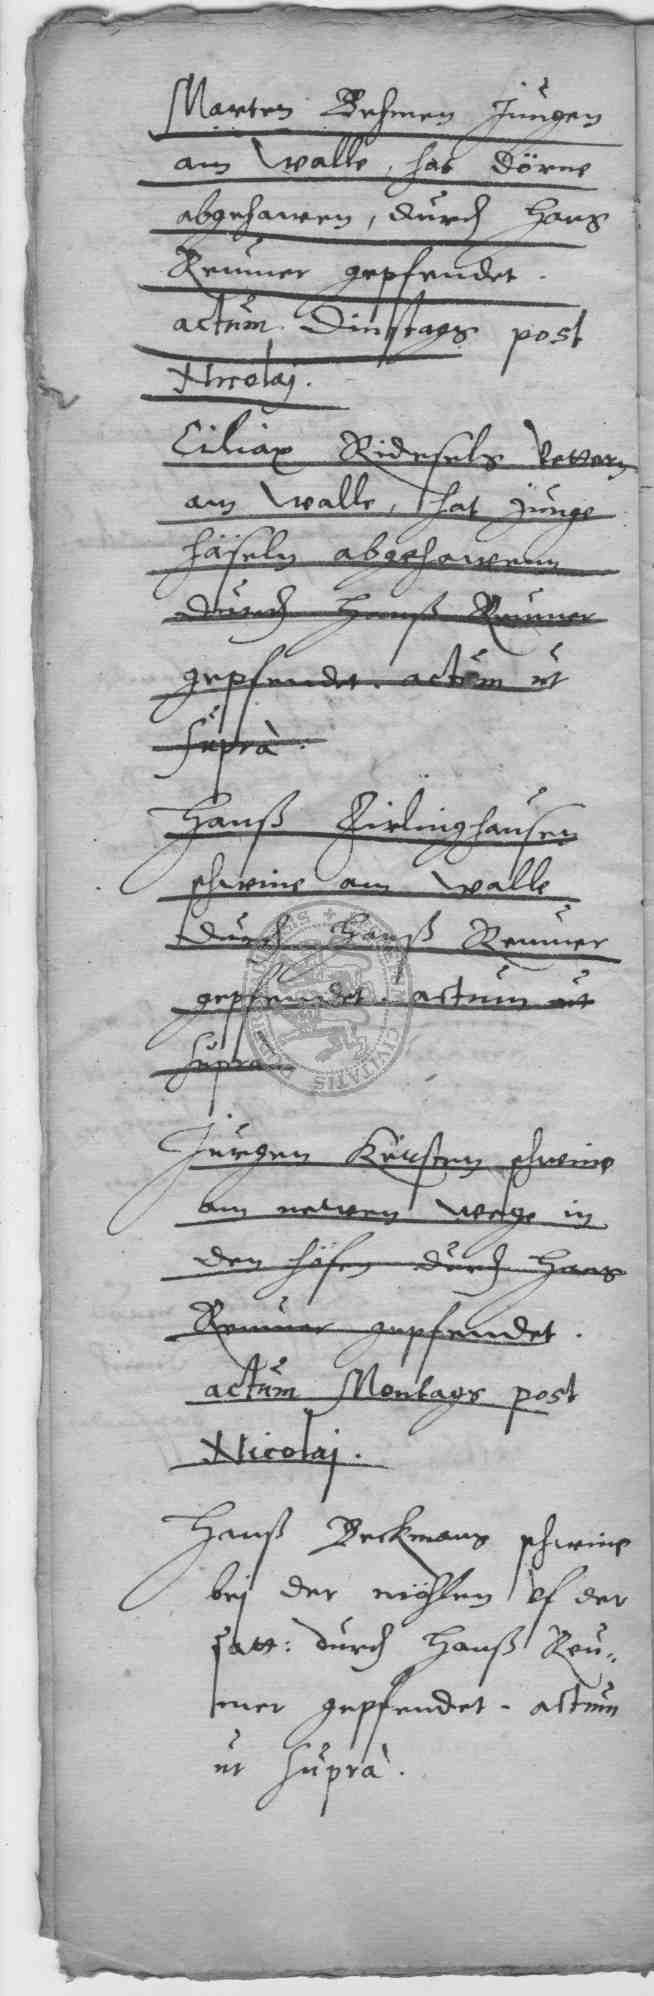 Marten Behmen Jungen
am Walle, hat Dörne
abgehawen, durch Hans
Reumer gepfendet.
actum Dinstags post
Nicolaj.
Ciliax Ridesels Vettern
am Walle, hat junge
häseln abgehawenn
durch Hanß Reumer
gepfendet. actum ut
suprà.
Hanß Zirlinghausen
schweine am Walle
durch Hanß Reumer
gepfendet. actum ut
supra
Jurgen Kersten schweine
am newen wege in
den höfen durch Hans
Reumer gepfendet.
actum Montags post
Nicolaj.
Hanß Beckmans schweine
bej der möhlen vf der
satt: durch Hanß Reu-
mer gepfendet. actum
ut suprà.
CIVITATIS